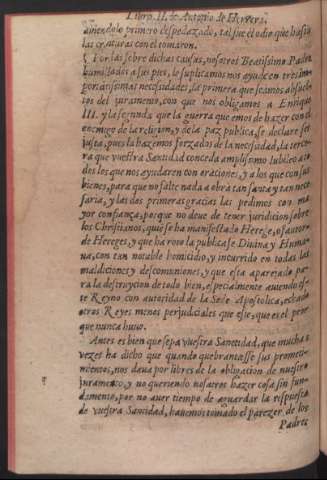 Libro. II. de Antonio de Herrera.
dolo primero despedaçado, tal fue el odio que hasta
las criaturas con el tomaron.
Por las sobre dichas causas, nosotros Beatissimo Padre
humillados a sus pies, le suplicamos nos ayude en tres im-
portantissimas necessidades, la primera que seamos absuel-
tos del juramento, con que nos obligamos a Enrique
III. y la segunda que la guerra que emos de hazer con el
enemigo de la religion, y de la paz publica, se declare ser
justa, pues la hazemos forzados de la necessidad, la terce-
ra que vuestra Santidad conceda amplissimo Iubileo a to-
dos los que nos ayudaren con oraciones, y a los que con sus
bienes, para que no falte nada a obra tan santa y tan neces-
saria, y las dos primeras gracias las pedimos con ma-
yor confiança, porque no deue de tener juridicion sobre
los Christianos, quiē se ha manifestado Herege, o fautor
de Hereges, y que ha roto la publica fe Diuina y Huma-
na, con tan notable homicidio, y incurrido en todas las
maldiciones y descomuniones, y que esta aparejado pa-
ra la destruycion de todo bien, especialmente auiendo es-
te Reyno con autoridad de la Sede Apostolica, echado
otros Reyes menos perjudiciales que este, que es el peor
que nunca huuo.
Antes es bien que sepa vuestra Sanctidad, que muchas
vezes ha dicho que quando quebrantasse sus prometi-
mientos, nos daua por libres de la obligacion de nuestro
juramento, y no queriendo nosotros hazer cosa sin fun-
damento, por no auer tiempo de aguardar la respuesta
de vuestra Santidad, hauemos tomado el parezer de los
Padres